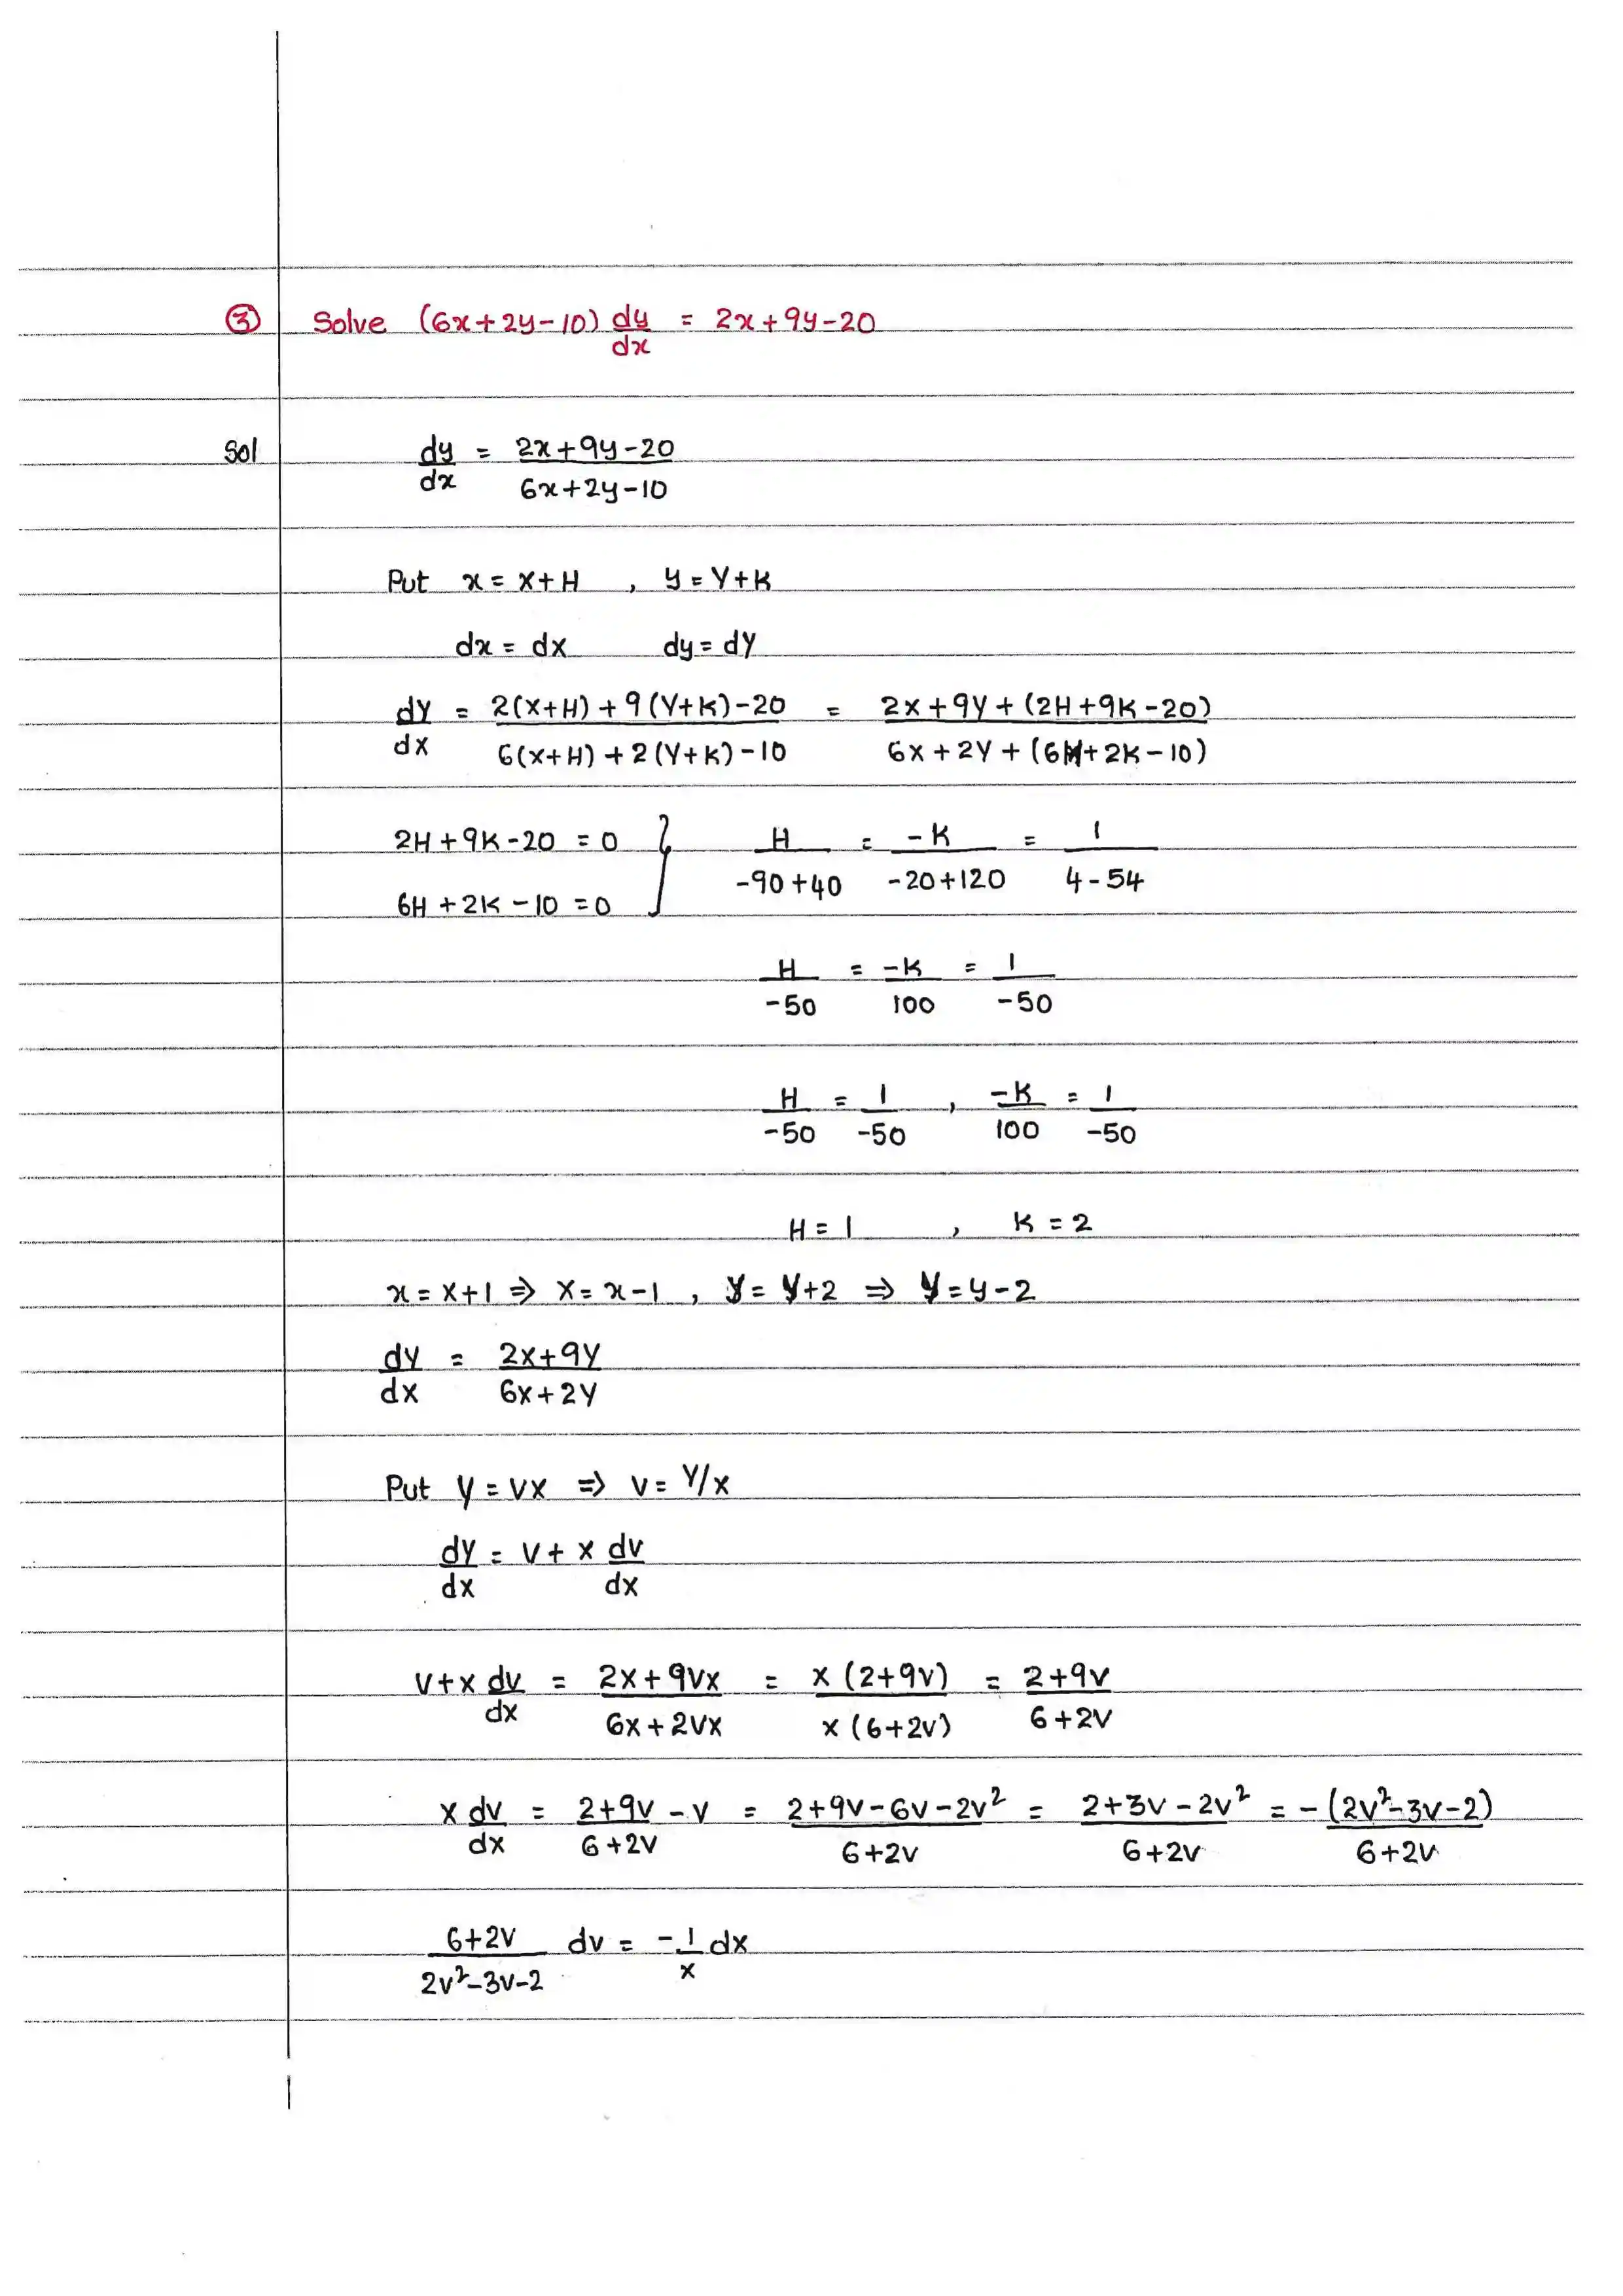 ③ Solve (6x+2y-10) dy/dx = 2x+9y-20
Sol dy/dx = (2x+9y-20)/(6x+2y-10)
Put x = X+H , y = Y+K
dx = dX dy = dY
dY/dX = (2(X+H)+9(Y+K)-20)/(6(X+H)+2(Y+K)-10) = (2X+9Y+(2H+9K-20))/(6X+2Y+(6H+2K-10))
2H+9K-20 = 0 } H/(-90+40) = -K/(-20+120) = 1/(4-54)
6H+2K-10 = 0
H/-50 = -K/100 = 1/-50
H/-50 = 1/-50 , -K/100 = 1/-50
H = 1 , K = 2
x = X+1 ⇒ X = x-1 , y = Y+2 ⇒ Y = y-2
dY/dX = (2X+9Y)/(6X+2Y)
Put Y = VX ⇒ V = Y/X
dY/dX = V + X dV/dX
V+X dV/dX = (2X+9VX)/(6X+2VX) = X(2+9V)/X(6+2V) = (2+9V)/(6+2V)
X dV/dX = (2+9V)/(6+2V) - V = (2+9V-6V-2V²)/(6+2V) = (2+3V-2V²)/(6+2V) = -(2V²-3V-2)/(6+2V)
(6+2V)/(2V²-3V-2) dV = -1/X dX